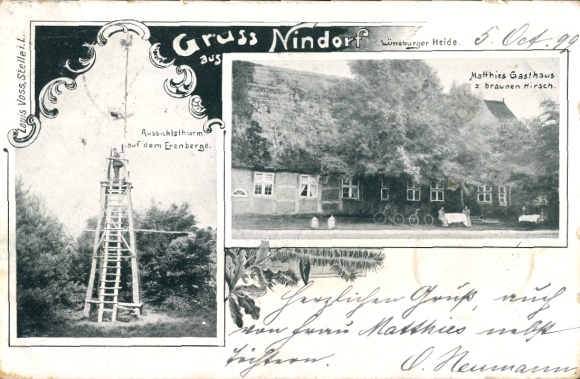 Gruss aus Nindorf Lüneburger Heide.
5. Oct. 99
Louis Voss, Stelle i. L.
Aussichtsthurm
auf dem Ererberge.
Matthies Gasthaus
z. braunen Hirsch.
Herzlichen Gruß, auch
von Frau Matthies nebst
Töchtern.
O. Neumann